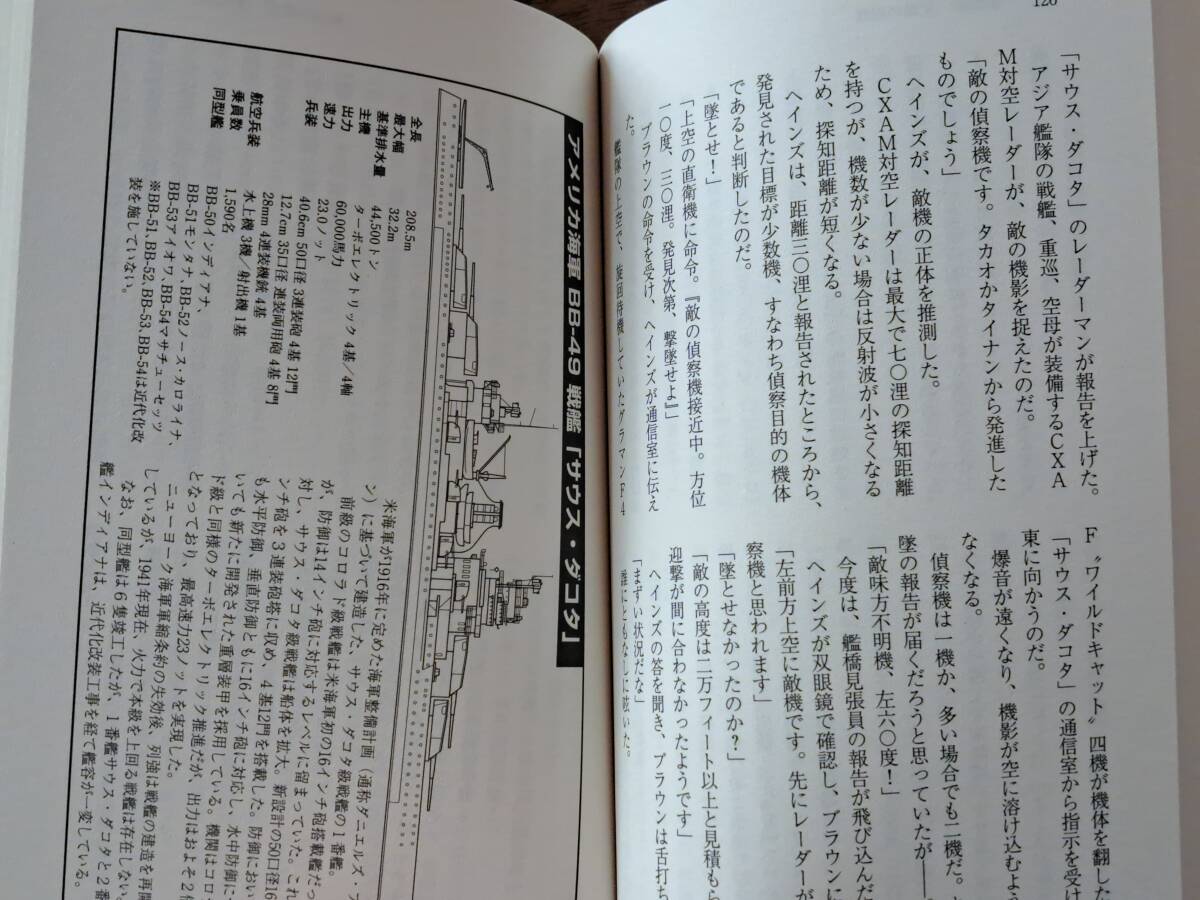 120
「サウス・ダコタ」のレーダーマンが報告を上げた。
アジア艦隊の戦艦、重巡、空母が装備するCXA
M対空レーダーが、敵の機影を捉えたのだ。
「敵の偵察機です。タカオかタイナンから発進した
ものでしょう」
ヘインズが、敵機の正体を推測した。
CXAM対空レーダーは最大で七〇浬の探知距離
を持つが、機数が少ない場合は反射波が小さくなる
ため、探知距離が短くなる。
ヘインズは、距離三〇浬と報告されたところから、
発見された目標が少数機、すなわち偵察目的の機体
であると判断したのだ。
「墜とせ！」
「上空の直衛機に命令。『敵の偵察機接近中。方位
一〇度、三〇浬。発見次第、撃墜せよ』」
ブラウンの命令を受け、ヘインズが通信室に伝え
た。
艦隊の上空で、旋回待機していたグラマンF4
F〝ワイルドキャット〟四機が機体を翻した
「サウス・ダコタ」の通信室から指示を受け
東に向かうのだ。
爆音が遠くなり、機影が空に溶け込むよう
なくなる。
偵察機は一機か、多い場合でも二機だ。
墜の報告が届くだろうと思っていたが――
「敵味方不明機、左六〇度！」
今度は、艦橋見張員の報告が飛び込んだ
ヘインズが双眼鏡で確認し、ブラウンに
「左前方上空に敵機です。先にレーダーが
察機と思われます」
「墜とせなかったのか？」
「敵の高度は二万フィート以上と見積もら
迎撃が間に合わなかったようです」
ヘインズの答を聞き、ブラウンは舌打ち
「まずい状況だな」
誰にともなしに呟いた。
アメリカ海軍 BB-49 戦艦「サウス・ダコタ」
全長 208.5m
最大幅 32.2m
基準排水量 44,500トン
主機 ターボエレクトリック 4基/4軸
出力 60,000馬力
速力 23.0ノット
兵装 40.6cm 50口径 3連装砲 4基 12門
12.7cm 35口径 連装両用砲 4基 8門
28mm 4連装機銃 4基
航空兵装 水上機 3機/射出機 1基
乗員数 1,590名
同型艦 BB-50インディアナ、
BB-51モンタナ、BB-52ノース・カロライナ、
BB-53アイオワ、BB-54マサチューセッツ
※BB-51、BB-52、BB-53、BB-54は近代化改
装を施していない。
米海軍が1916年に定めた海軍整備計画（通称ダニエルズ・プ
ン）に基づいて建造した、サウス・ダコタ級戦艦の1番艦。
前級のコロラド級戦艦は米海軍初の16インチ砲搭載艦だっ
が、防御は14インチ砲に対応するレベルに留まっていた。これ
対し、サウス・ダコタ級戦艦は船体を拡大。新設計の50口径16
ンチ砲を3連装砲塔に収め、4基12門を搭載した。防御におい
も水平防御、垂直防御ともに16インチ砲に対応し、水中防御に
いても新たに開発された重層装甲を採用している。機関はコロ
ド級と同様のターボエレクトリック推進だが、出力はおよそ2倍
となっており、最高速力23ノットを実現した。
ニューヨーク海軍軍縮条約の失効後、列強は戦艦の建造を再開
しているが、1941年現在、火力で本級を上回る戦艦は存在しない。
なお、同型艦は6隻竣工したが、1番艦サウス・ダコタと2番
艦インディアナは、近代化改装工事を経て艦容が一変している。